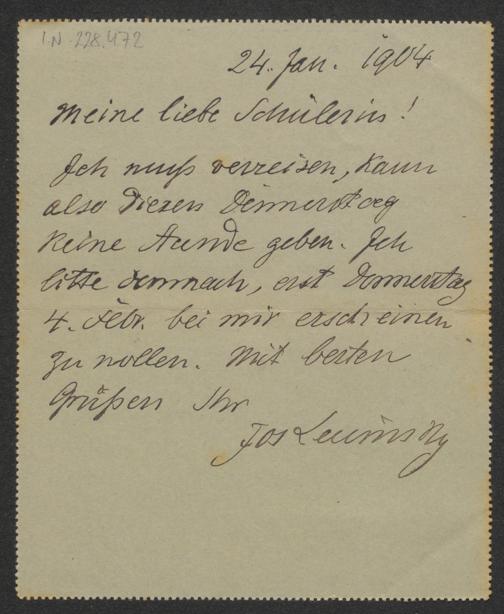 I.N. 228.472
24. Jan. 1904
Meine liebe Schülerin!
Ich muß verreisen, kann
also diesen Donnerstag
keine Stunde geben. Ich
bitte demnach, erst Donnerstag
4. Febr. bei mir erscheinen
zu wollen. Mit besten
Grüßen Ihr
Jos Lewinsky